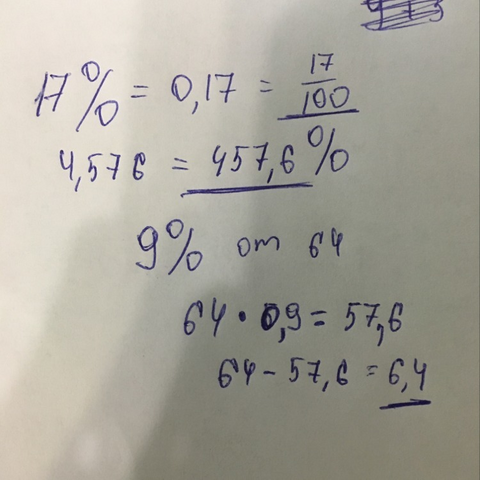 17% = 0,17 = 17/100
4,576 = 457,6%
9% от 64
64 · 0,9 = 57,6
64 - 57,6 = 6,4